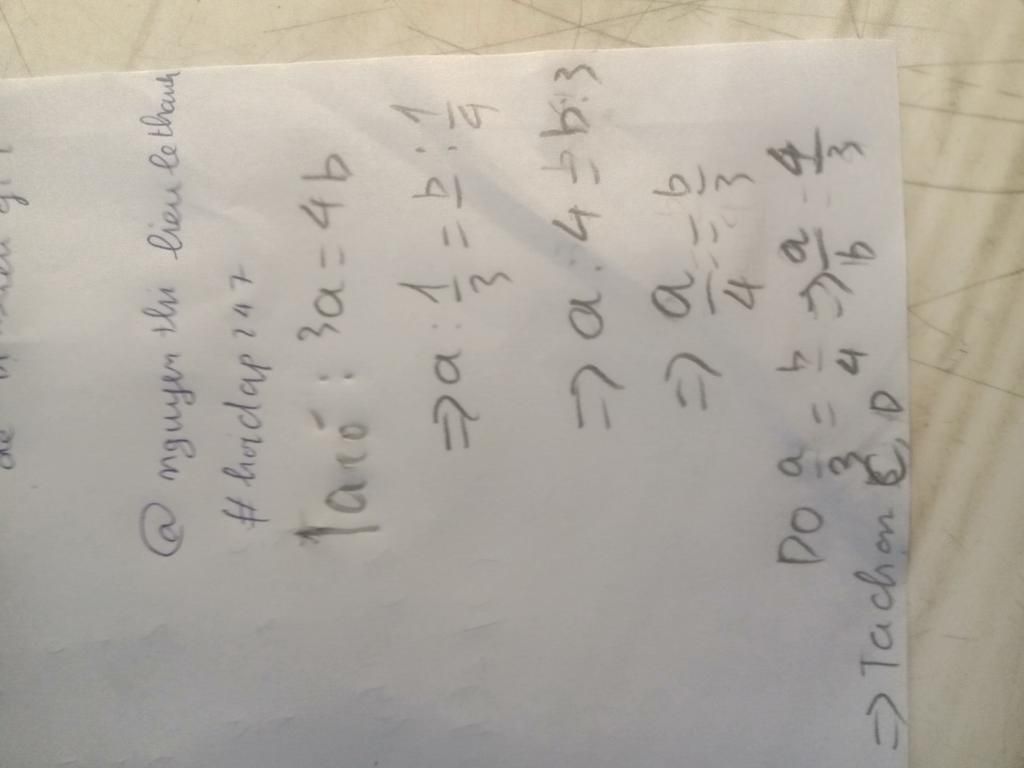 @ nguyen thi lieu lethanh
# hoidap 247
Ta có : 3a = 4b
=> a : 1/3 = b : 1/4
=> a : 4 = b : 3
=> a/4 = b/3
Do a/3 = b/4 => a/b = 4/3
=> Ta chọn C, D